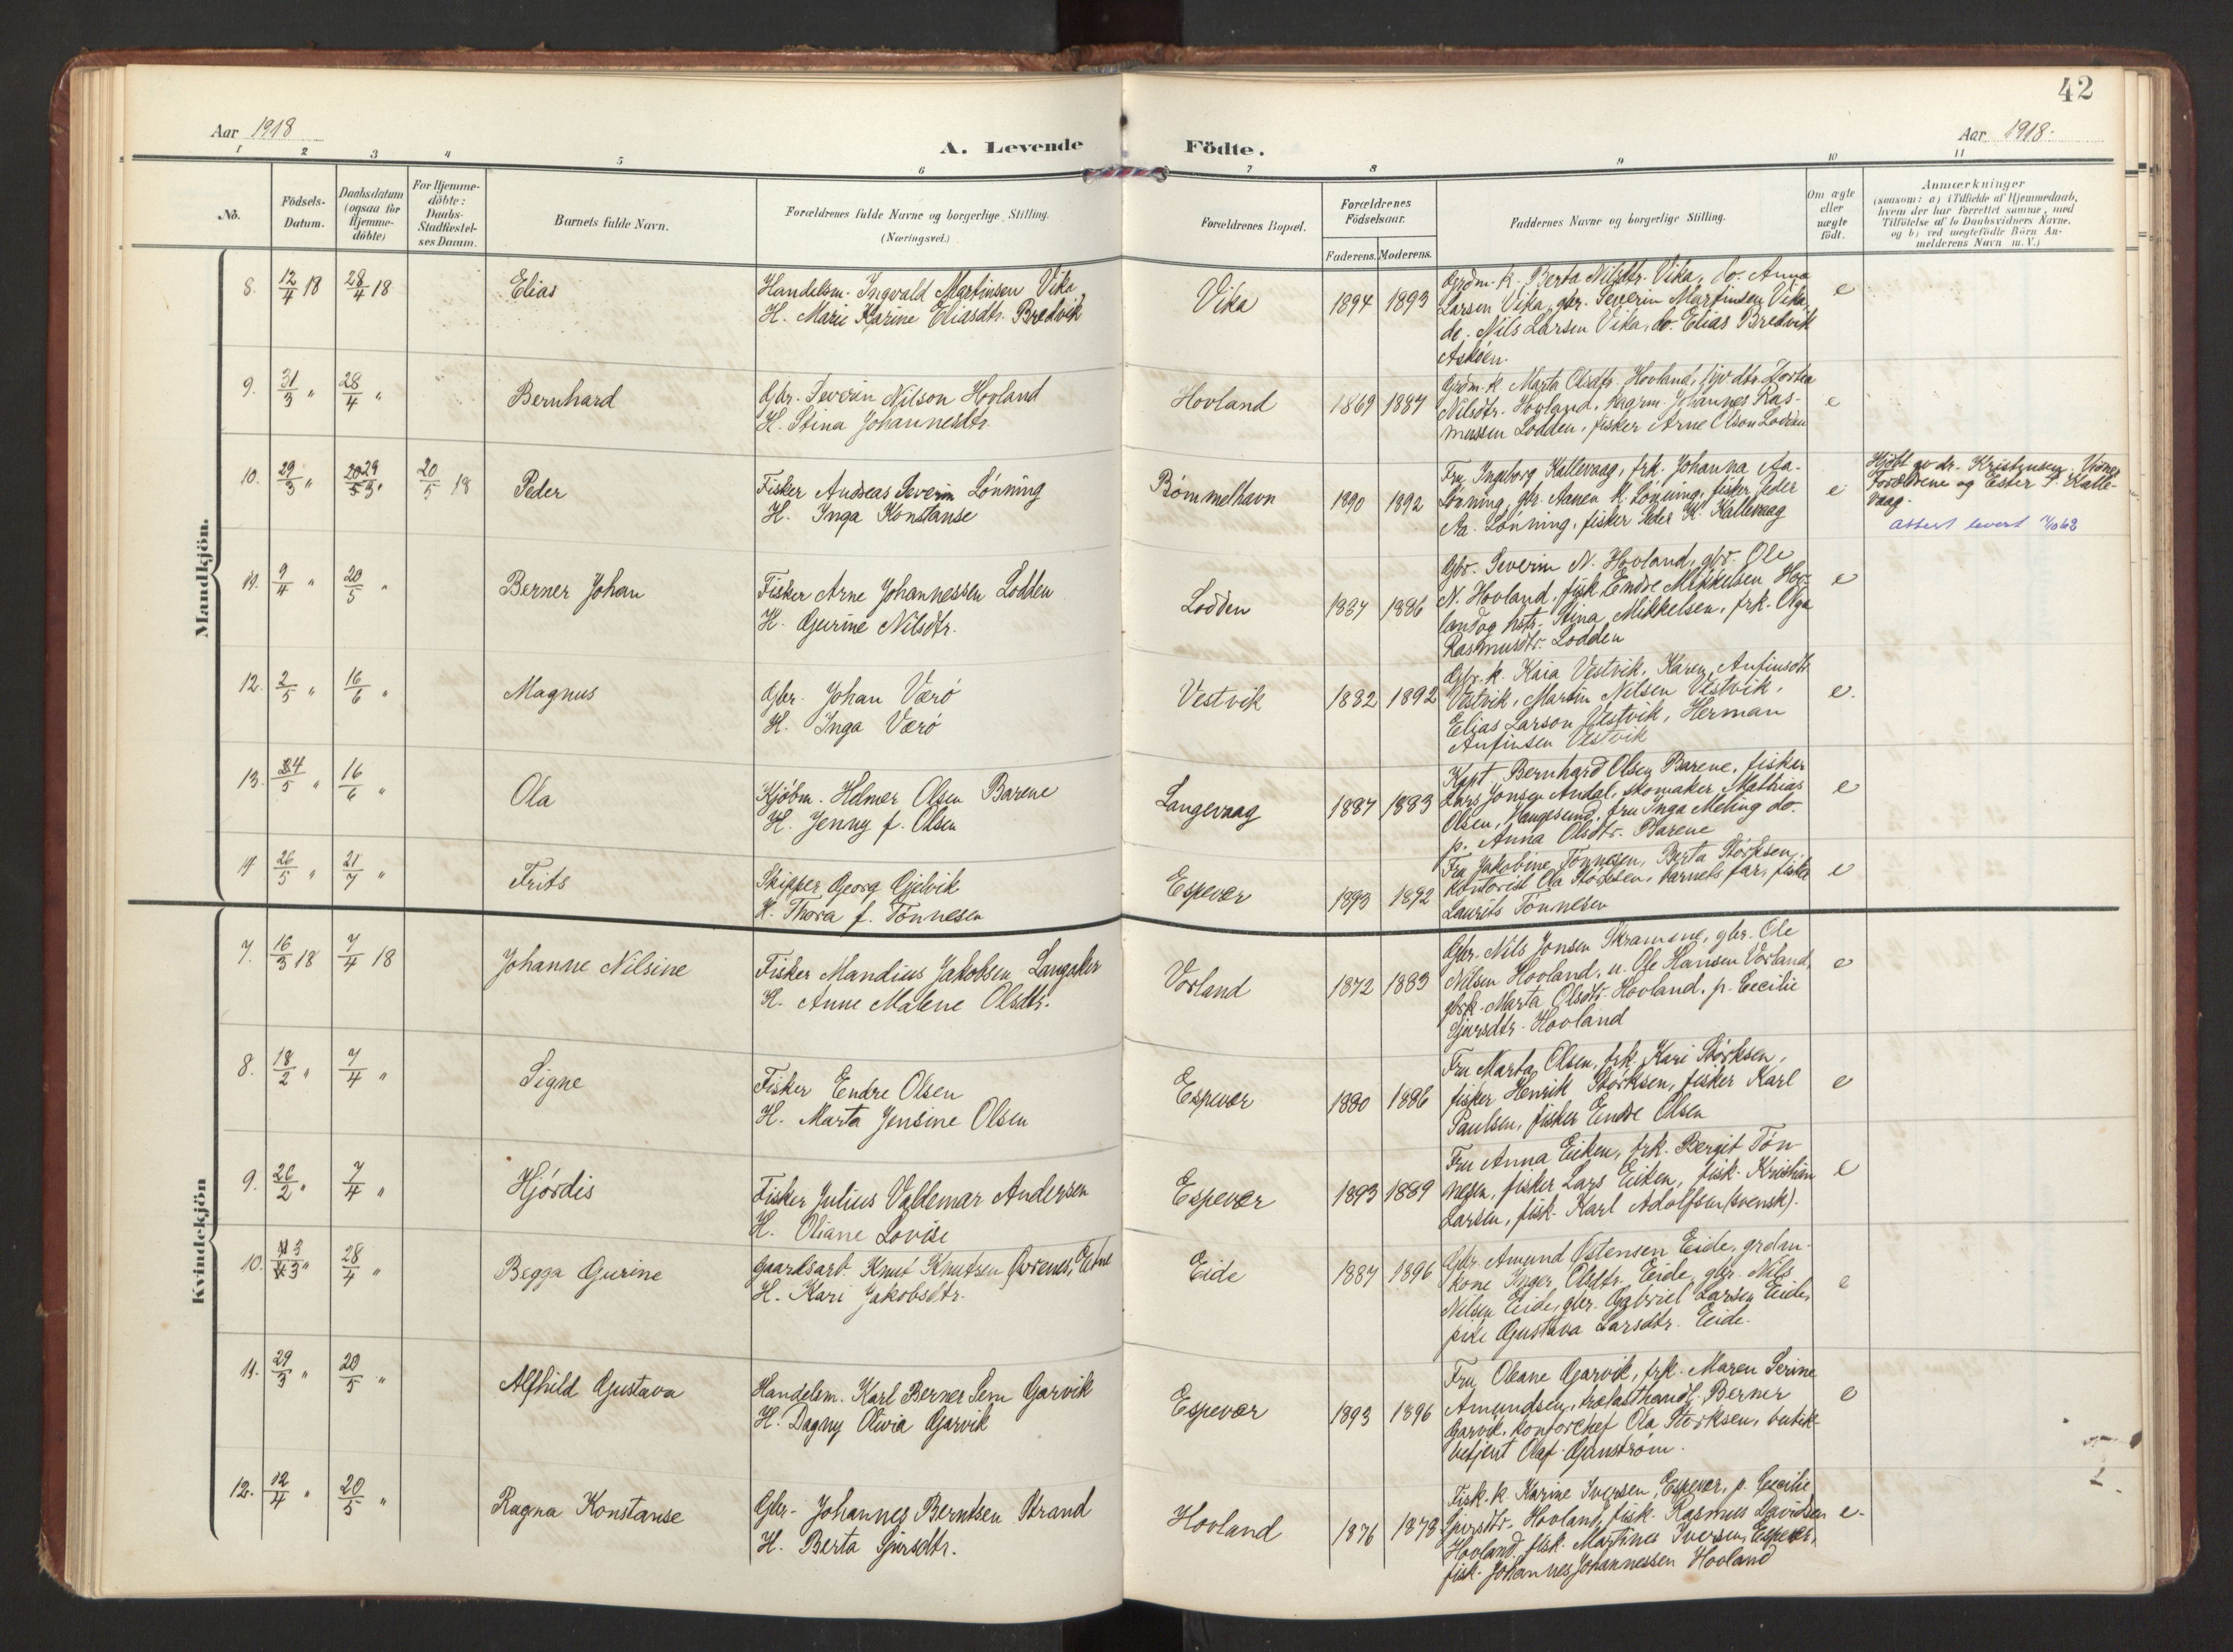 42
Aar 1918
Aar 1918.
A. Levende Födte.
1 2 3 4 5 6 7 8 9 10 11
No.
Födsels-Datum.
Daabsdatum (ogsaa for Hjemme-döbte)
For Hjemme-döbte: Daabs-Stadfæstel-ses Datum.
Barnets fulde Navn.
Forældrenes fulde Navne og borgerlige Stilling.
(Næringsvei.)
Forældrenes Bopæl.
Forældrenes Födselsaar.
Faderens. Moderens.
Faddernes Navne og borgerlige Stilling.
Om ægte eller uægte födt.
Anmærkninger
(saasom: a) i Tilfælde af Hjemmedaab,
hvem der har forrettet samme, med
Tilföielse af to Daabsvidners Navne,
og b) ved uægtefödte Börn An-
melderens Navn m. V.)
Mandkjön.
8. 12/4 18 28/4 18 Elias
Handelsm. Ingvald Martinsen Vika
H. Marie Karine Eliasdtr. Bredvik
Vika 1894 1893
Grdm. k. Berta Nilsdtr. Vika, do. Anna
Larsen Vika, gbr. Severin Martinsen Vika,
do. Nils Larsen Vika, do. Elias Bredvik
Askøen.
e
9. 31/3 " 28/4 " Bernhard
Gbr. Severin Nilson Hovland
H. Stina Johannesdtr.
Hovland 1869 1887
Grdm. k. Marta Olsdtr. Hovland,
Nilsdtr. Hovland, Johannes Ras-
mussen Lodden, fisker Arne Olson Lodden
e
10. 29/3 " 29/3 " 20/5 18 Peder
Fisker Andreas Severin Lønning
H. Inga Konstanse
Bømmelhavn 1890 1892
Fru Ingeborg Kallevaag, frk. Johanna Aa-
Lønning, gbr. Aanen K. Lønning, fisker Peder
Aa. Lønning, fisker Peder K. Kallevaag
e
Hjdøbt av dr. Kristensen. Vidner
Forældrene og Ester P. Kalle-
vaag.
attest levert
11. 9/4 " 20/5 " Berner Johan
Fisker Arne Johannessen Lodden
H. Gurine Nilsdtr.
Lodden 1887 1886
Gbr. Severin N. Hovland, gbr. Ole
N. Hovland, fisk. Endre Mikkelsen Hov-
land og hstr. Stina Mikkelsen, frk. Olga
Rasmusdtr. Lodden
e
12. 2/5 " 16/6 " Magnus
Gbr. Johan Værø
H. Inga Værø
Vestvik 1882 1892
Gbr. k. Kaia Vestvik, Karen Anfinsdtr.
Vestvik, Martin Nilsen Vestvik,
Elias Larson Vestvik, Herman
Anfinsen Vestvik
e.
13. 24/5 " 16/6 " Ola
Kjøbm. Helmer Olsen Barene
H. Jenny f. Olsen
Langevaag 1887 1883
Kapt. Bernhard Olsen Barene, fisker
Lars Jonsen Andal, skomaker Mathias
Olsen, Haugesund, fru Inga Meling do.
p. Anna Olsdtr. Barene
e
14 26/5 " 21/7 " Frits
Skipper Georg Gjelvik
H. Thora f. Tønnesen
Espevær 1893 1892
Fru Jakobine Tønnesen, Berta Størksen,
kontorist Ola Størksen, barnets far, fisker
Laurits Tønnesen
e
Kvindekjön
7. 16/3 18 7/4 18 Johanne Nilsine
Fisker Mandius Jakobsen Langaker
H. Anne Malene Olsdtr.
Vorland 1872 1883
Gbr. Nils Jonsen Skramme, gbr. Ole
Nilsen Hovland, u. Ole Hansen Vorland,
gbrk. Marta Olsdtr. Hovland, p. Cecilie
Sjursdtr. Hovland
e
8. 18/2 " 7/4 " Signe
Fisker Endre Olsen
H. Marta Jensine Olsen
Espevær 1880 1886
Fru Marta Olsen, frk. Kari Størksen,
fisker Henrik Størksen, fisker Karl
Paulsen, fisker Endre Olsen
e
9. 26/2 " 7/4 " Hjørdis
Fisker Julius Valdemar Andersen
H. Oliane Lovise
Espevær 1893 1889
Fru Anna Eiken, frk. Bergit Tøn-
nesen, fisker Lars Eiken, fisk. Kristian
Larsen, fisk. Karl Adolfsen (svensk).
e
10. 28/4 " Begga Gurine
Gaardsarb. Knut Knutsen Etne
H. Kari Jakobsdtr.
Eide 1887 1896
Gbr. Amund Østensen Eide, grdm-
kone Inger Olsdtr. Eide, gbr. Nils
Nilsen Eide, gbr. Gabriel Larsen Eide,
pike Gustava Larsdtr. Eide.
e
11. 29/3 " 20/5 " Alfhild Gustava
Handelsm. Karl Berner Sem Garvik
H. Dagny Olivia Garvik
Espevær 1893 1896
Fru Oleane Garvik, frk. Maren Serine
Amundsen, trelasthandl. Berner
Garvik, kontorchef Ola Størksen, butik-
betjent Olaf Granstrøm.
e
12. 12/4 " 20/5 " Ragna Konstanse
Gbr. Johannes Berntsen Strand
H. Berta Sjursdtr.
Hovland 1876 1878
Fisk. k. Karine Iversen, Espevær, p. Cecilie
Sjursdtr. Hovland, fisk. Rasmus Davidsen
Hovland, fisk. Martines Iversen, Espevær,
fisk. Johannes Johannessen Hovland
e.